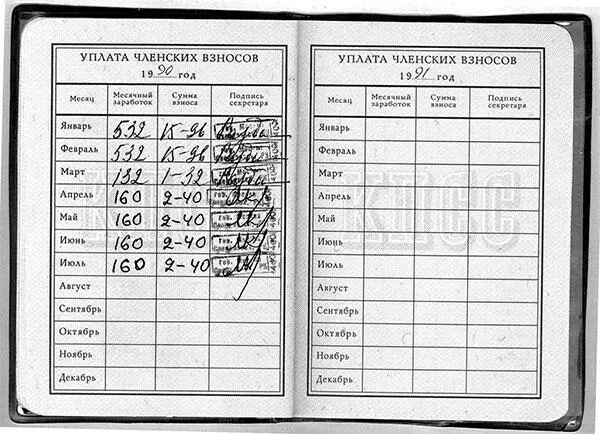 УПЛАТА ЧЛЕНСКИХ ВЗНОСОВ
19 90 год
Месяц Месячный заработок Сумма взноса Подпись секретаря
Январь 532 15-96
Февраль 532 15-96
Март 132 1-32
Апрель 160 2-40
Май 160 2-40
Июнь 160 2-40
Июль 160 2-40
Август
Сентябрь
Октябрь
Ноябрь
Декабрь
КПСС
УПЛАТА ЧЛЕНСКИХ ВЗНОСОВ
19 91 год
Месяц Месячный заработок Сумма взноса Подпись секретаря
Январь
Февраль
Март
Апрель
Май
Июнь
Июль
Август
Сентябрь
Октябрь
Ноябрь
Декабрь
КПСС